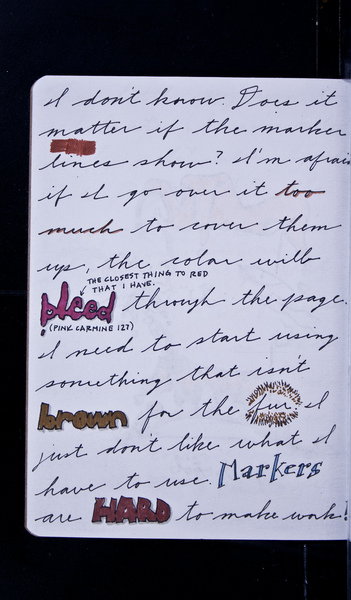 I don't know. Does it
matter if the marker
lines show? I'm afraid
if I go over it too
much to cover them
up, the color will
THE CLOSEST THING TO RED
THAT I HAVE.
bleed through the page.
(PINK CARMINE 127)
I need to start using
something that isn't
brown for the fur. I
just don't like what I
have to use. Markers
are HARD to make work!